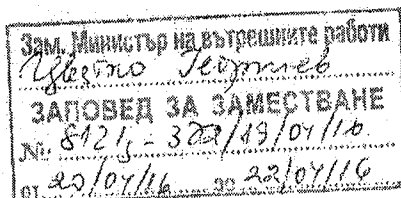 Зам. Министър на вътрешните работи
Цветко Георгиев
ЗАПОВЕД ЗА ЗАМЕСТВАНЕ
№ 8121з-322/19/04/16
от 20/04/16 до 22/04/16